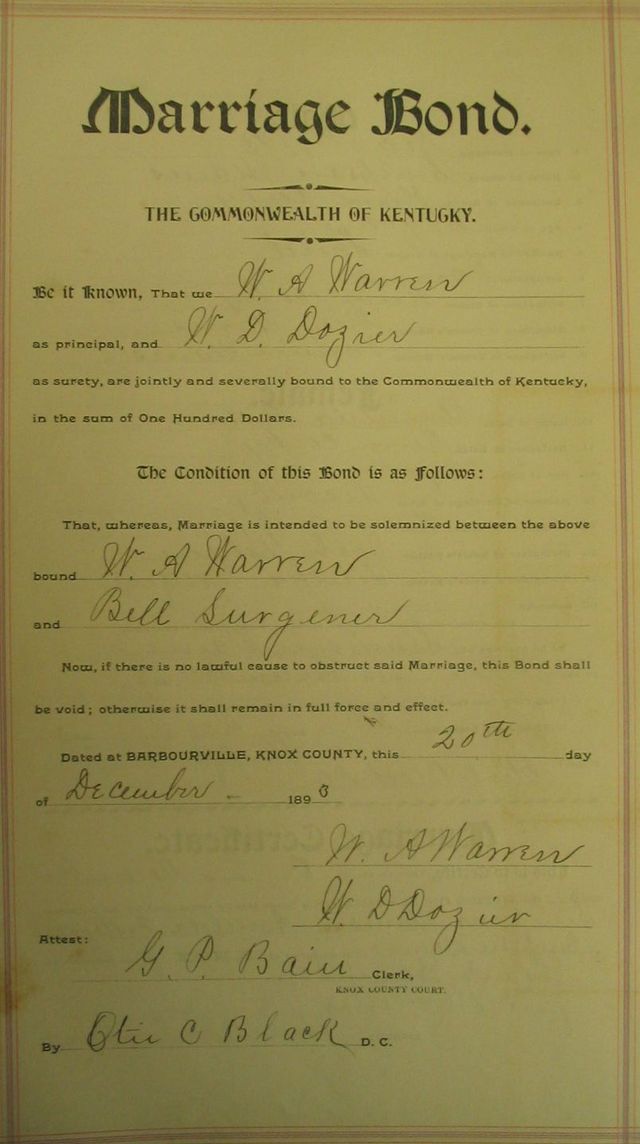 Marriage Bond.
THE COMMONWEALTH OF KENTUCKY.
Be it Known, That we W. A Warren
as principal, and W. D. Dozier
as surety, are jointly and severally bound to the Commonwealth of Kentucky,
in the sum of One Hundred Dollars.
The Condition of this Bond is as Follows:
That, whereas, Marriage is intended to be solemnized between the above
bound W. A Warren
and Bell Surgener
Now, if there is no lawful cause to obstruct said Marriage, this Bond shall
be void; otherwise it shall remain in full force and effect.
Dated at BARBOURVILLE, KNOX COUNTY, this 20th day
of December 189
W. A Warren
W. D Dozier
Attest:
G. P. Bain Clerk,
KNOX COUNTY COURT.
By C Black D. C.